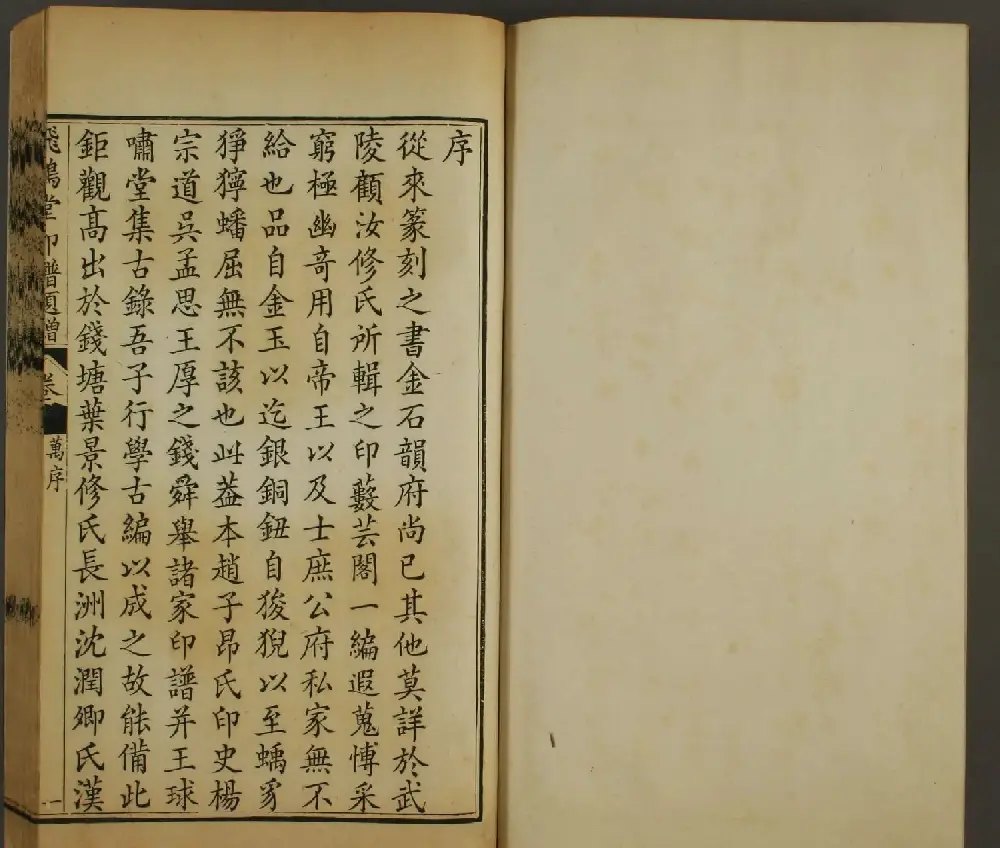 序
從來篆刻之書金石韻府尚已其他莫詳於武
陵顧汝修氏所輯之印藪芸閣一編遐蒐愽采
窮極幽竒用自帝王以及士庶公府私家無不
給也品自金玉以迄銀銅鈕自狻猊以至螭豸
猙獰蟠屈無不該也此葢本趙子昂氏印史楊
宗道吳孟思王厚之錢舜舉諸家印譜并王球
嘯堂集古錄吾子行學古編以成之故能備此
鉅觀髙出於錢塘葉景修氏長洲沈潤卿氏漢
飛鴻堂印譜題贈
卷
萬序
一